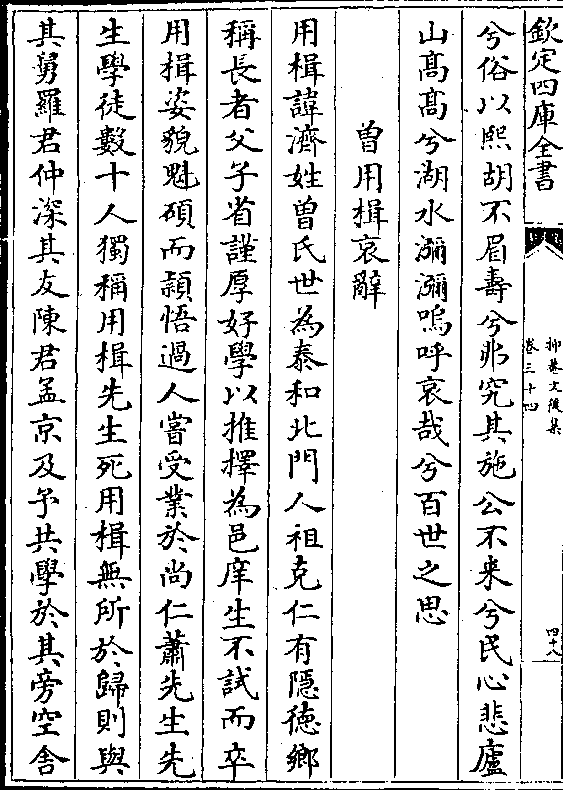 欽定四庫全書
抑菴文後集
卷三十四
四十八
兮俗以熙胡不眉壽兮丕究其施公不来兮民心悲廬
山髙髙兮湖水瀰瀰嗚呼哀哉兮百世之思
曾用楫哀辭
用楫諱濟姓曾氏世為泰和北門人祖克仁有隠徳鄉
稱長者父子省謹厚好學以推擇為邑庠生不試而卒
用楫姿貌魁碩而頴悟過人嘗受業於尚仁蕭先生先
生學徒數十人獨稱用楫先生死用楫無所於歸則與
其舅羅君仲深其友陳君孟京及予共學於其旁空舍